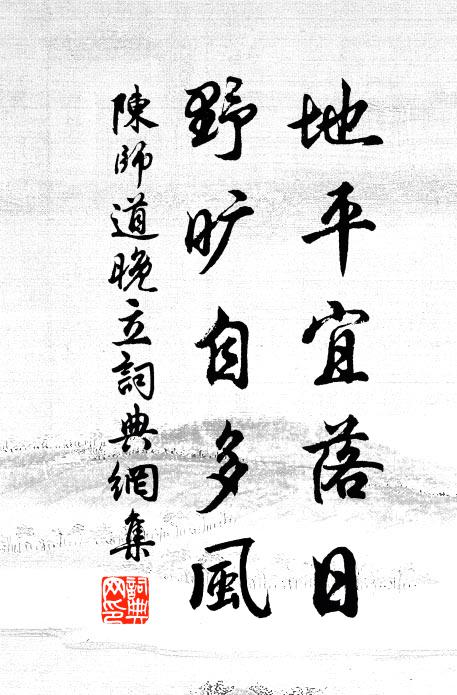 地平宜落日
野旷自多風
陳師道晚立詞典網集
詞典网印